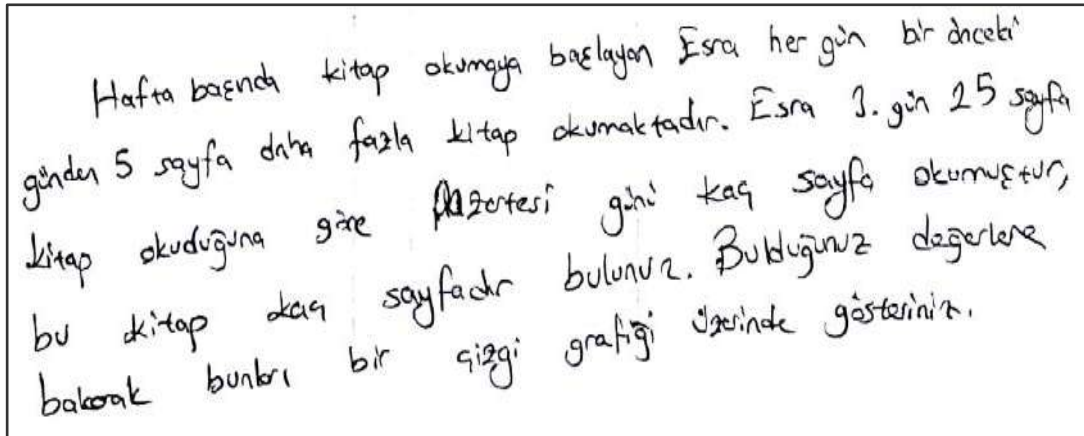 Hafta başında kitap okumaya başlayan Esra her gün bir önceki
günden 5 sayfa daha fazla kitap okumaktadır. Esra 3. gün 25 sayfa
kitap okuduğuna göre Pazartesi günü kaç sayfa okumuştur,
bu kitap kaç sayfadır bulunuz. Bulduğunuz değerlere
bakarak bunları bir çizgi grafiği üzerinde gösteriniz.